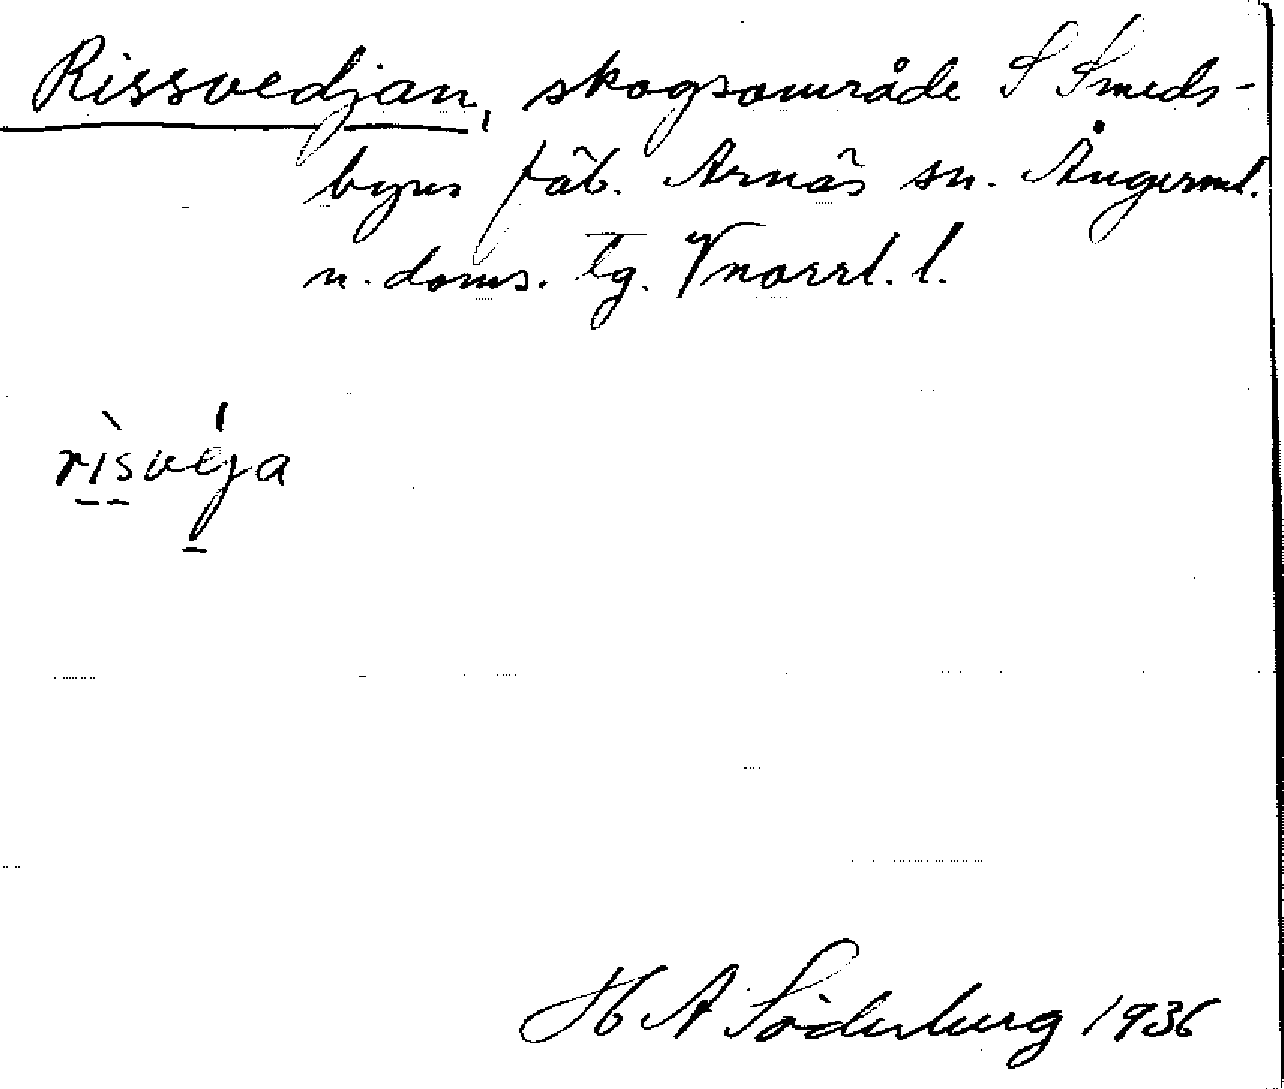 Rissvedjan, skogsområde S Smeds-
byns fäb. Arnäs sn. Ångerml.
n. doms. tg. Vnorrl. l.
rìsvéja
H A Söderberg 1936